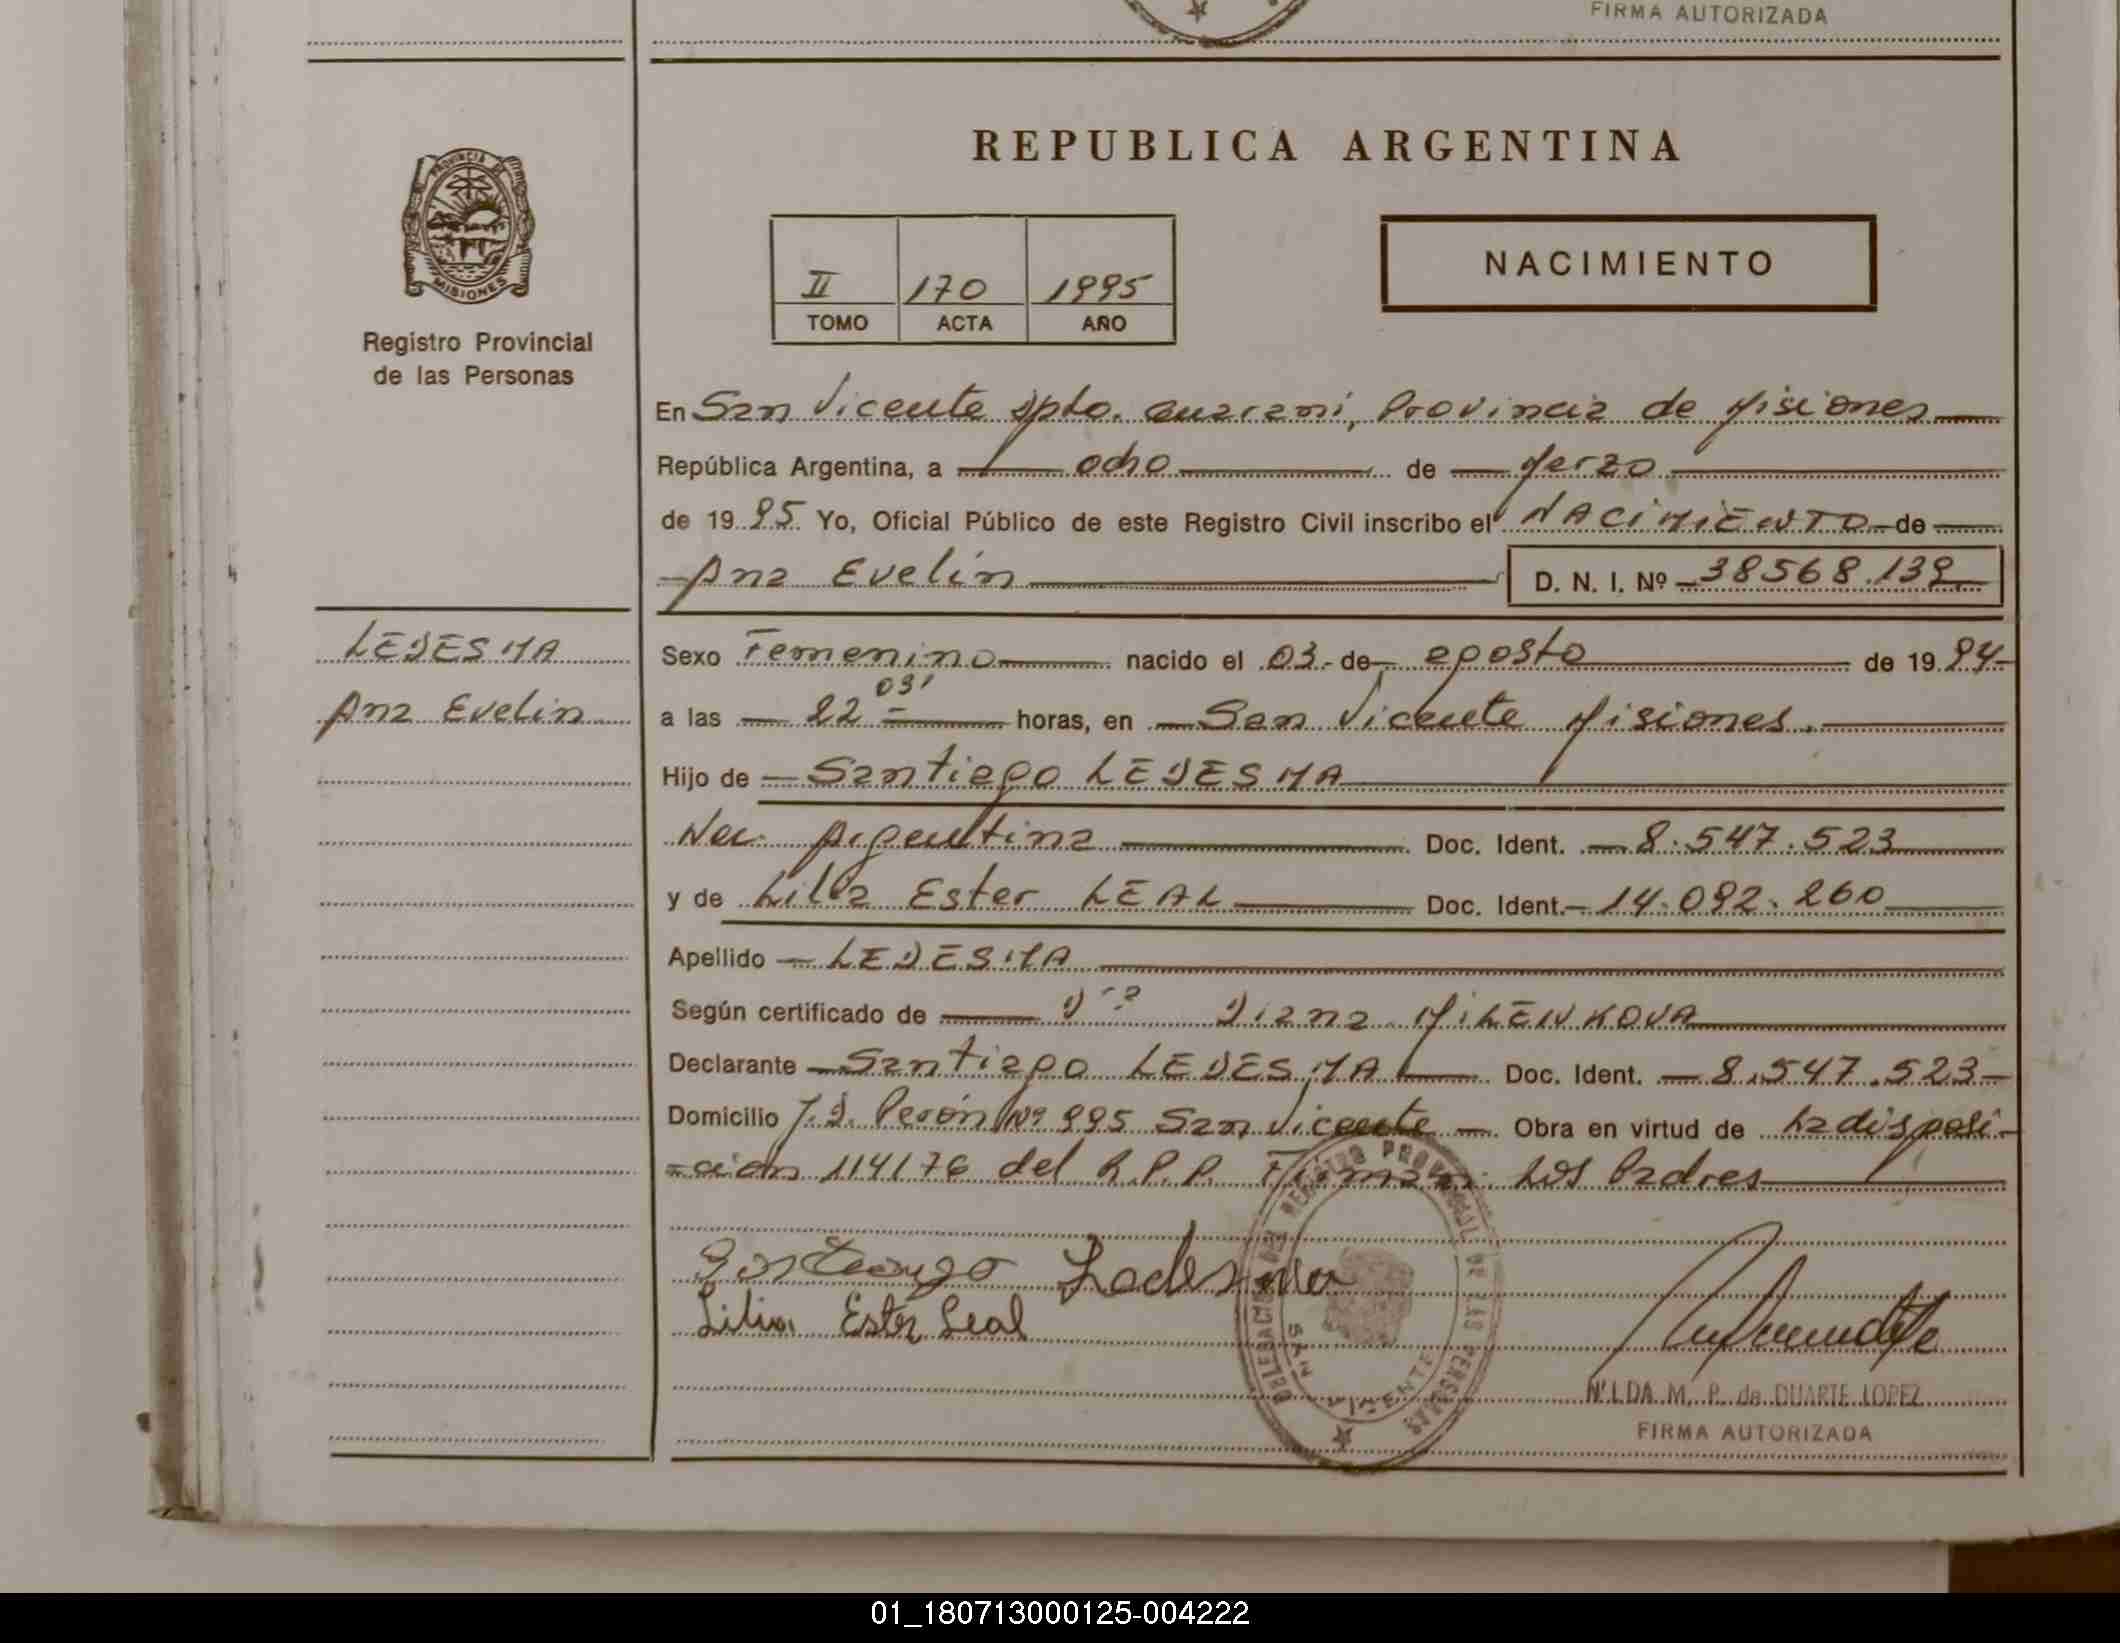 FIRMA AUTORIZADA
PROVINCIA DE
MISIONES
Registro Provincial
de las Personas
REPUBLICA ARGENTINA
II 170 1995
TOMO ACTA AÑO
NACIMIENTO
En San Vicente Dpto. Guarani, Provincia de Misiones
República Argentina, a ocho de Marzo
de 1995 Yo, Oficial Público de este Registro Civil inscribo el NACIMIENTO de
Ana Evelin D. N. I. Nº 38568.139
LEDESMA
Ana Evelin
Sexo Femenino nacido el 03 de agosto de 1994
a las 22 03' horas, en San Vicente Misiones.
Hijo de Santiago LEDESMA
Nac. Argentina Doc. Ident. 8.547.523
y de Lilia Ester LEAL Doc. Ident. 14.092.260
Apellido LEDESMA
Según certificado de Dra Diana MILENKOVA
Declarante Santiago LEDESMA Doc. Ident. 8.547.523
Domicilio J.D. Perón Nº 995 San Vicente Obra en virtud de La disposi-
-cion 114176 del R.P.P. Firman: Los Padres
Santiago Ledesma
Lilia Ester Leal
DELEGACION DEL REGISTRO PROVINCIAL DE LAS PERSONAS
SAN VICENTE
NILDA M. P. de DUARTE LOPEZ
FIRMA AUTORIZADA
01_180713000125-004222